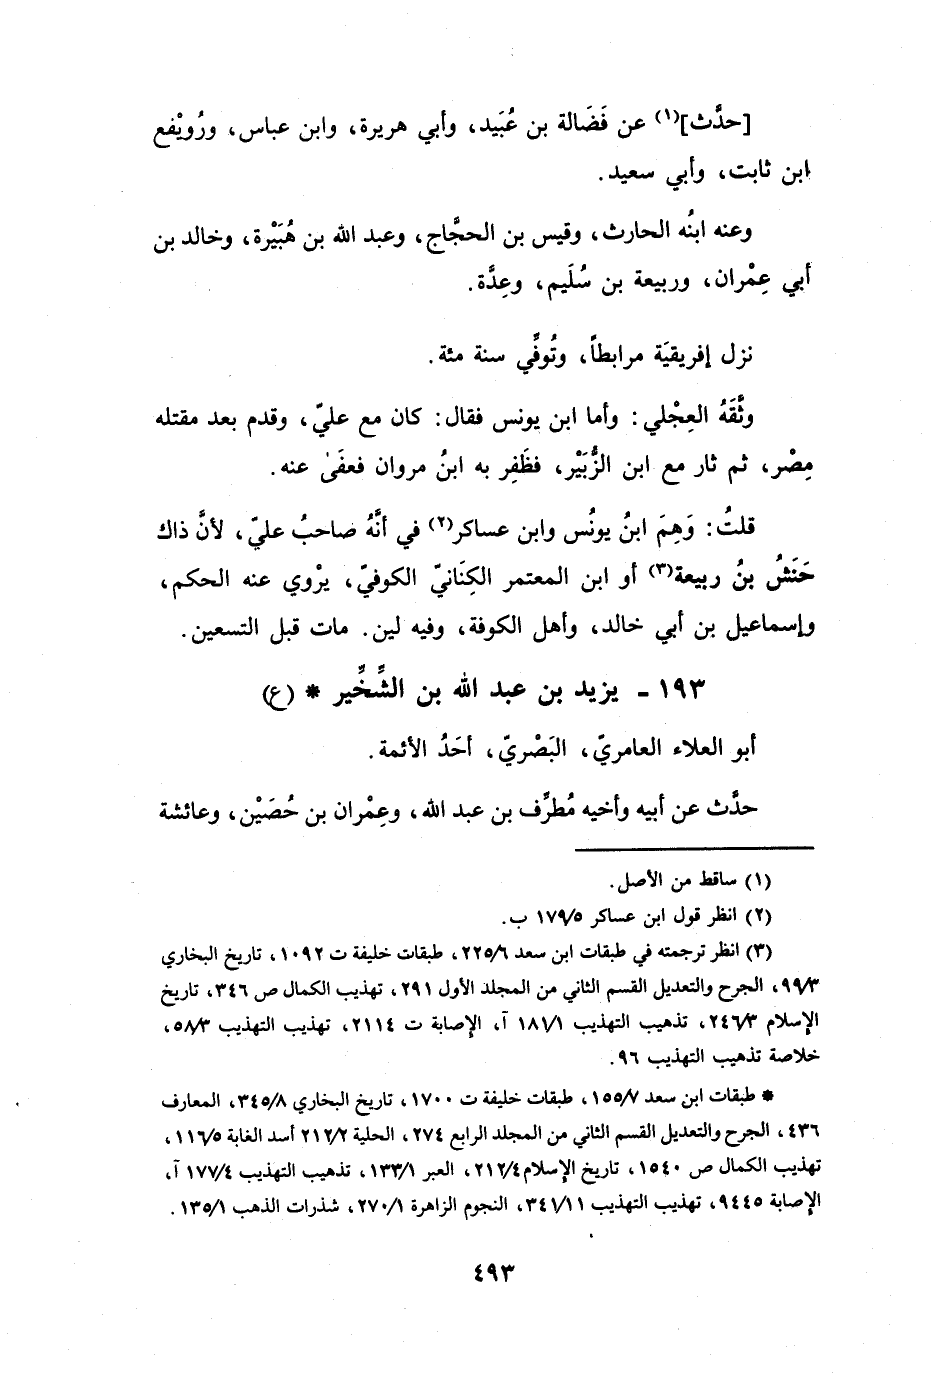 [حدَّث](١) عن فَضَالة بن عُبَيد، وأبي هريرة، وابن عباس، ورُويْفع
ابن ثابت، وأبي سعيد.
وعنه ابنُه الحارث، وقيس بن الحجَّاج، وعبد الله بن هُبَيْرة، وخالد بن
أبي عِمْران، وربيعة بن سُلَيم، وعِدَّة.
نزل إفريقيَة مرابطاً، وتُوفِّي سنة مئة.
وثَّقَهُ العِجْلي: وأما ابن يونس فقال: كان مع عليّ، وقدم بعد مقتله
مِصْر، ثم ثار مع ابن الزُّبَيْر، فظَفِر به ابنُ مروان فعفَىٰ عنه.
قلتُ: وَهِمَ ابنُ يونُس وابن عساكر(٢) في أنَّهُ صاحبُ عليّ، لأنَّ ذاك
حَنَشُ بنُ ربيعة(٣) أو ابن المعتمر الكِنَانيّ الكوفيّ، يرْوي عنه الحكم،
وإسماعيل بن أبي خالد، وأهل الكوفة، وفيه لين. مات قبل التسعين.
١٩٣ - يزيد بن عبد الله بن الشِّخِّير * (ع)
أبو العلاء العامريّ، البَصْريّ، أحَدُ الأئمة.
حدَّث عن أبيه وأخيه مُطرِّف بن عبد الله، وعِمْران بن حُصَيْن، وعائشة
(١) ساقط من الأصل.
(٢) انظر قول ابن عساكر ١٧٩/٥ ب.
(٣) انظر ترجمته في طبقات ابن سعد ٢٢٥/٦، طبقات خليفة ت ١٠٩٢، تاريخ البخاري
٩٩/٣، الجرح والتعديل القسم الثاني من المجلد الأول ٢٩١، تهذيب الكمال ص ٣٤٦، تاريخ
الإسلام ٢٤٦/٣، تذهيب التهذيب ١٨١/١ آ، الإصابة ت ٢١١٤، تهذيب التهذيب ٥٨/٣،
خلاصة تذهيب التهذيب ٩٦.
* طبقات ابن سعد ١٥٥/٧، طبقات خليفة ت ١٧٠٠، تاريخ البخاري ٣٤٥/٨، المعارف
٤٣٦، الجرح والتعديل القسم الثاني من المجلد الرابع ٢٧٤، الحلية ٢١٢/٢ أسد الغابة ١١٦/٥،
تهذيب الكمال ص ١٥٤٠، تاريخ الإسلام ٢١٢/٤، العبر ١٣٣/١، تذهيب التهذيب ١٧٧/٤ آ،
الإصابة ٩٤٤٥، تهذيب التهذيب ٣٤١/١١، النجوم الزاهرة ٢٧٠/١، شذرات الذهب ١٣٥/١.
٤٩٣